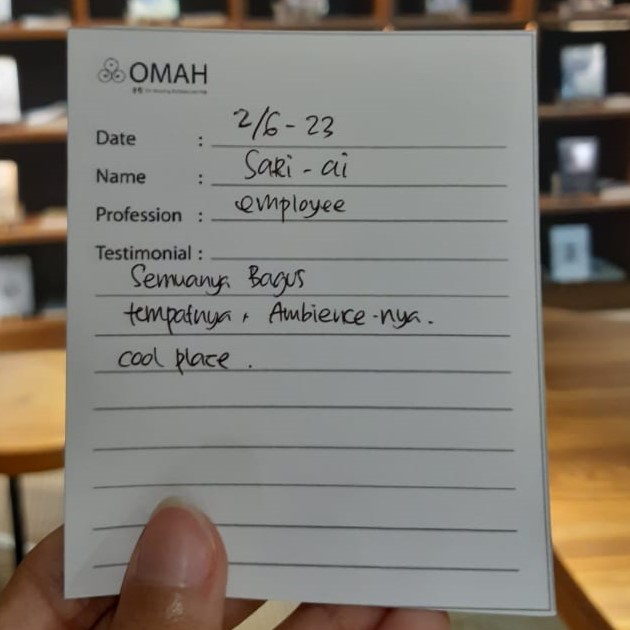 OMAH
Date : 2/6-23
Name : Sari-ai
Profession : employee
Testimonial :
Semuanya Bagus
tempatnya, Ambience-nya.
cool place.